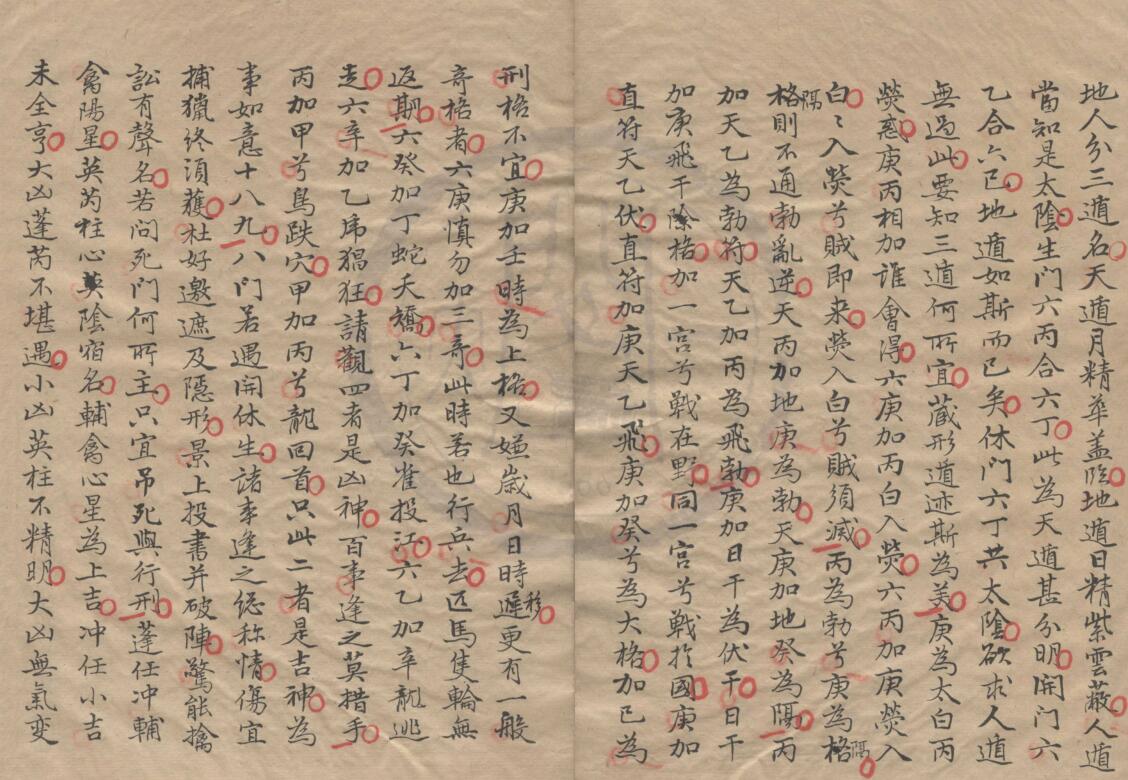 地人分三遁名天遁月精華盖临地遁日精紫雲蔽人遁
當知是太陰生門六丙合六丁此為天遁甚分明開门六
乙合六己地遁如斯而已矣休门六丁共太陰欲求人遁
無过此要知三遁何所宜蔵形遁迹斯為美庚為太白丙
熒惑庚丙相加誰會得六庚加丙白入熒六丙加庚熒入
白白入熒兮賊即来熒入白兮賊須滅丙為勃兮庚為格隔
格隔則不通勃亂逆天丙加地庚為勃天庚加地癸為隔丙
加天乙為勃符天乙加丙為飛勃庚加日干為伏干日干
加庚飛干除格加一宫兮戰在野同一宫兮戰於國庚加
直符天乙伏直符加庚天乙飛庚加癸兮為大格加己為
刑格不宜庚加壬時為上格又嫌歳月日時遲移更有一般
奇格者六庚慎勿加三奇此時若也行兵去匹馬隻輪無
返期六癸加丁蛇夭矯六丁加癸雀投江六乙加辛龍逃
走六辛加乙虎猖狂請觀四者是凶神百事逢之莫措手
丙加甲兮鳥跌穴甲加丙兮龍回首只此二者是吉神為
事如意十八九八门若遇開休生諸事逢之總称情傷宜
捕獵終須獲杜好邀遮及隱形景上投書并破陣驚能擒
訟有聲名若问死门何所主只宜吊死與行刑蓬任冲輔
禽陽星英芮柱心陰宿名輔禽心星為上吉冲任小吉
未全亨大凶蓬芮不堪遇小凶英柱不精明大凶無氣变